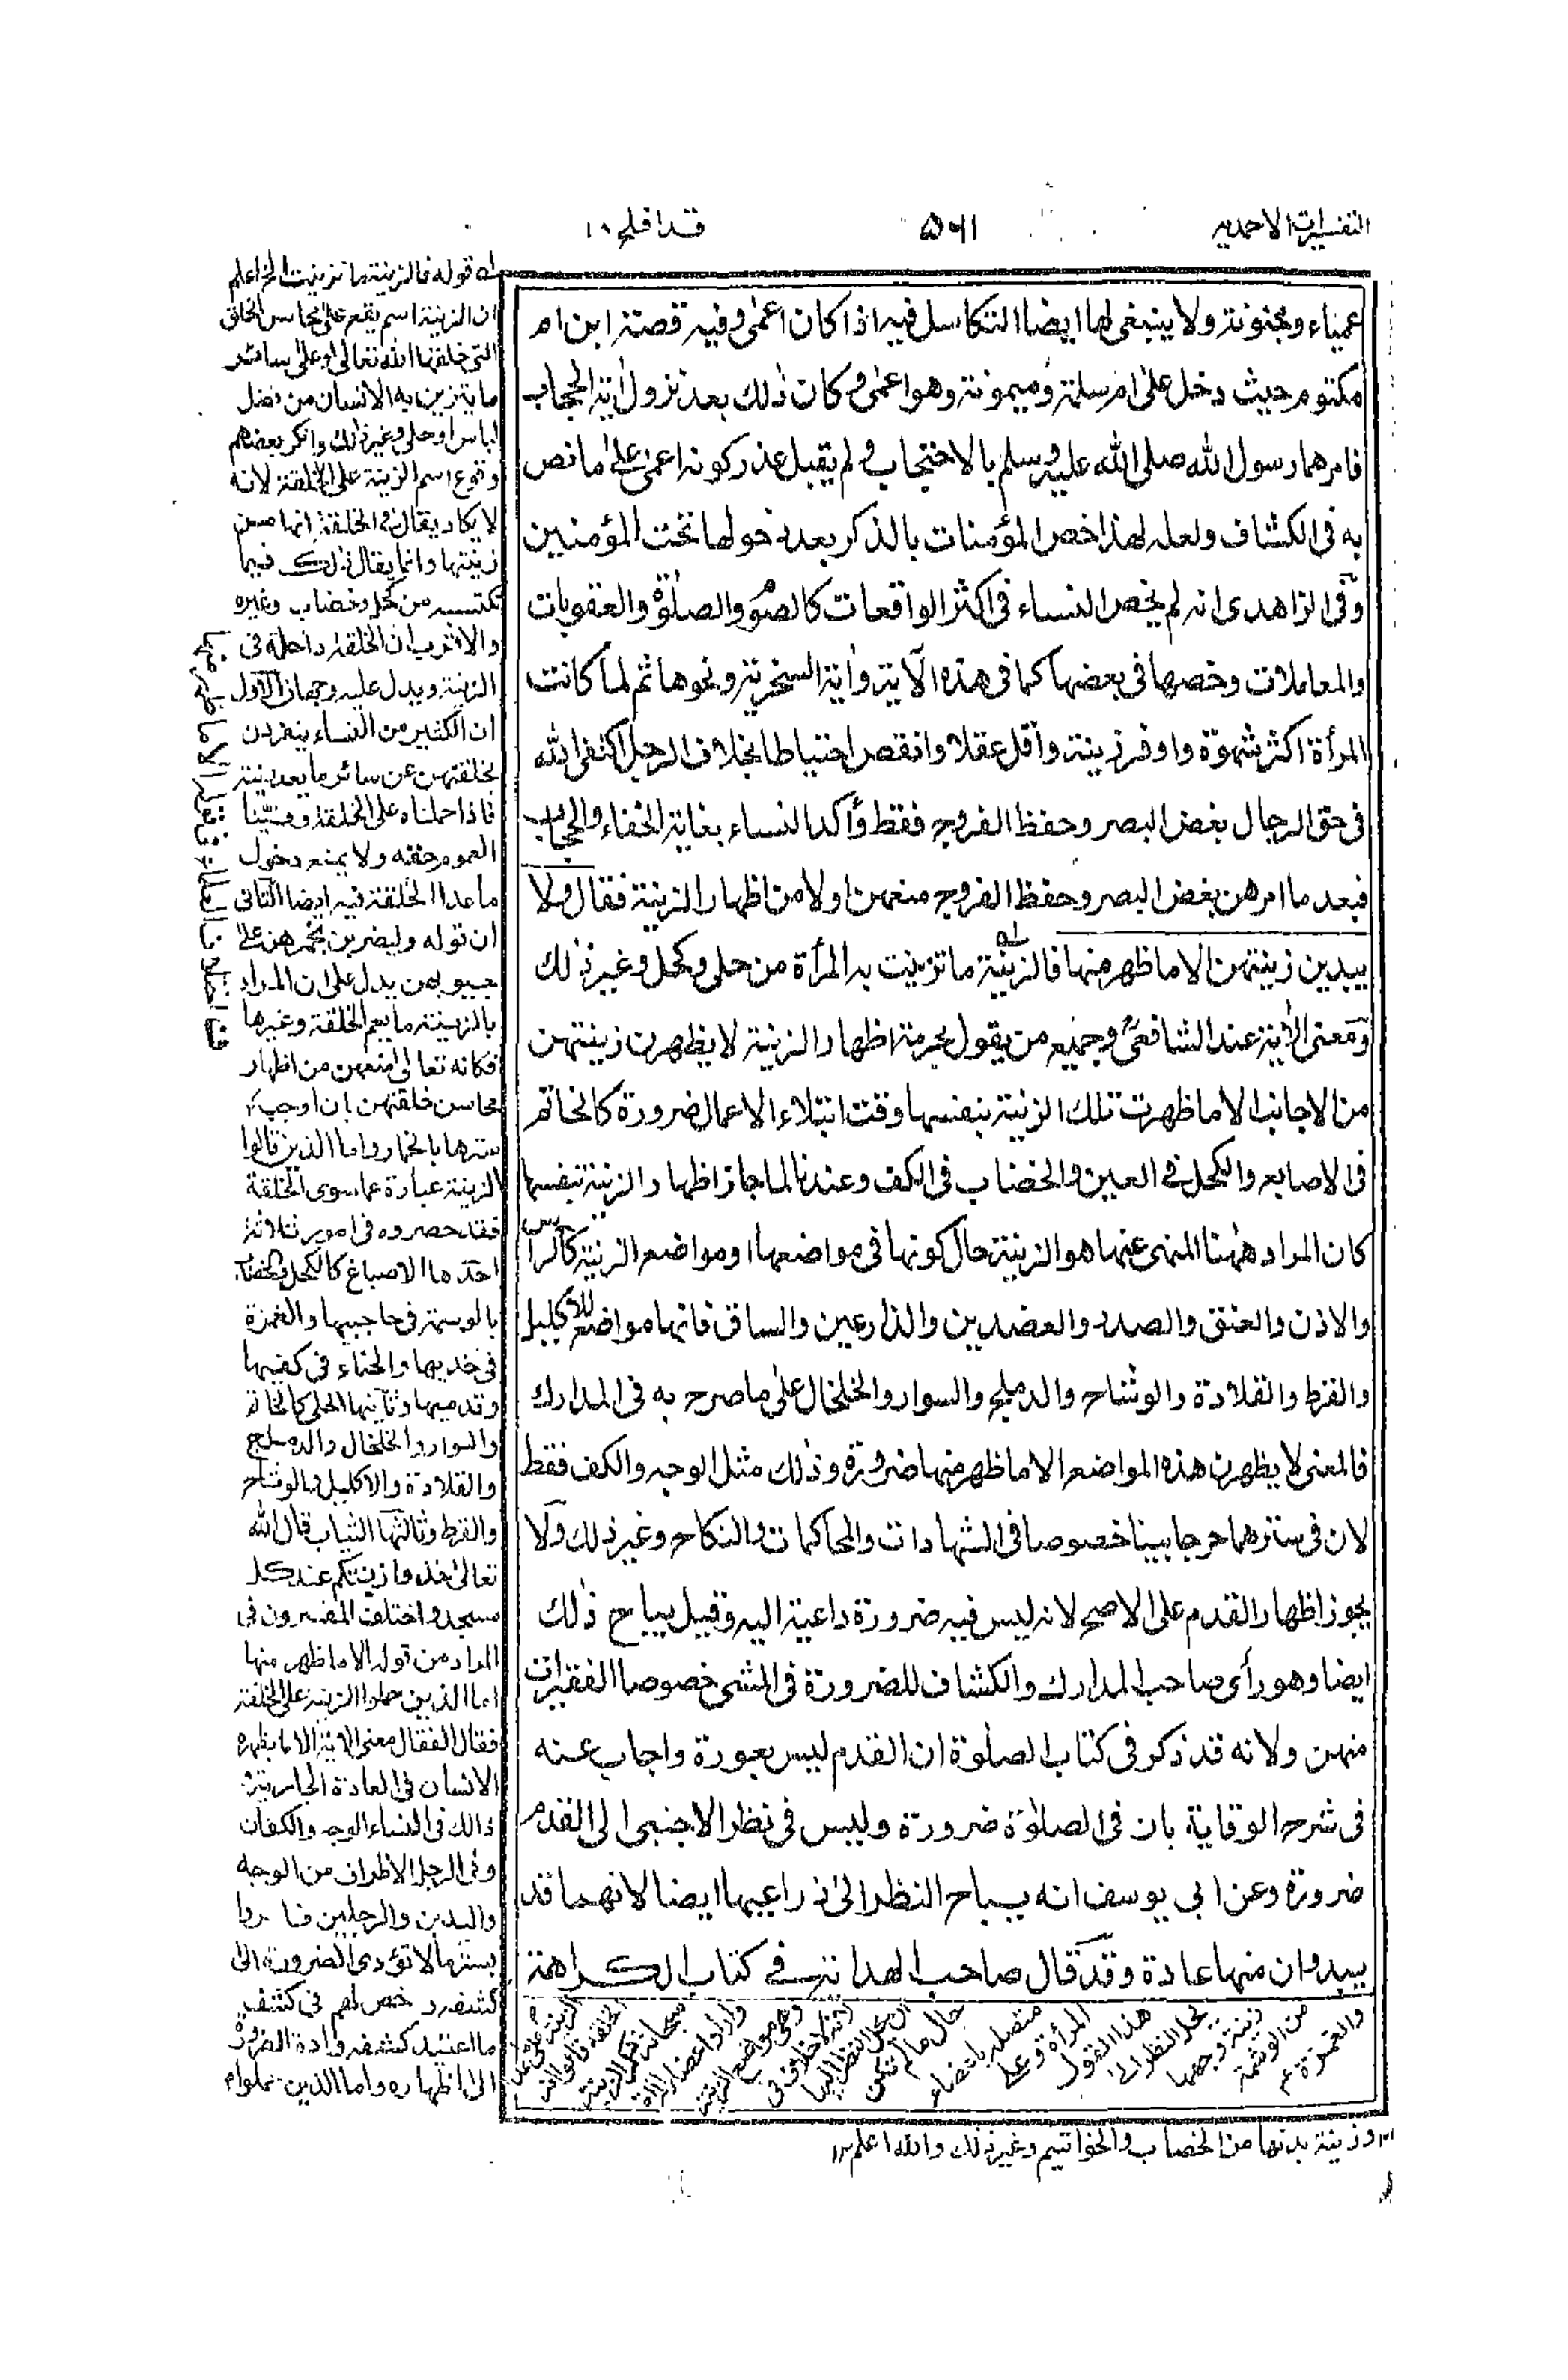 التفسيرات الاحمديه
٥٦١
قد افلح ١٨
عمياء ومجنونة ولا ينبغى لها ايضا التكاسل فيه اذا كان اعمٰى وفيه قصة ابن ام
مكتوم حيث دخل علىٰ ام سلمة وميمونة وهو اعمٰى وكان ذٰلك بعد نزول اٰية الحجاب
فامرهما رسول الله صلى الله عليه وسلم بالاحتجاب ولم يقبل عذر كونه اعمىٰ علىٰ ما نص
به فى الكشاف ولعله لهذا خص المؤمنات بالذكر بعد دخولها تحت المؤمنين
وفى الزاهدى انه لم يخص النساء فى اكثر الواقعات كالصوم والصلوٰة والعقوبات
والمعاملات وخصها فى بعضها كما فى هذه الآية واٰية السخرية ونحوها ثم لما كانت
المرأة اكثر شهوة واوفر زينة واقل عقلا وانقص احتياطا بخلاف الرجل اكتفى الله
فى حق الرجال بغض البصر وحفظ الفروج فقط وأكد النساء بغاية الخفاء والحجاب
فبعد ما امرهن بغض البصر وحفظ الفروج منعهن اولا من اظهار الزينة فقال ولا
يبدين زينتهن الا ما ظهر منها فالزينة ما تزينت به المرأة من حلى وكحل وغير ذٰلك
ومعنى الاٰية عند الشافعىؒ وجميع من يقول بحرمة اظهار الزينة لا يظهرن زينتهن
من الاجانب الا ما ظهرت تلك الزينة بنفسها وقت ابتلاء الاعمال ضرورة كالخاتم
فى الاصابع والكحل فى العين والخضاب فى الكف وعندنا لما جاز اظهار الزينة بنفسها
كان المراد هٰهنا المنهى عنها هو الزينة حال كونها فى مواضعها او مواضع الزينة كالرأس
والاذن والعنق والصدر والعضدين والذراعين والساق فانها مواضع للاكليل
والقرط والقلادة والوشاح والدملج والسوار والخلخال علىٰ ما صرح به فى المدارك
فالمعنى لا يظهرن هذه المواضع الا ما ظهر منها ضرورة وذٰلك مثل الوجه والكف فقط
لان فى سترهما حرجا بينا خصوصا فى الشهادات والمحاكمات والنكاح وغير ذلك ولا
يجوز اظهار القدم على الاصح لانه ليس فيه ضرورة داعية اليه وقيل يباح ذٰلك
ايضا وهو رأى صاحب المدارك والكشاف للضرورة فى المشى خصوصا الفقيرات
منهن ولانه قد ذكر فى كتاب الصلوٰة ان القدم ليس بعورة واجاب عنه
فى شرح الوقاية بان فى الصلوٰة ضرورة وليس فى نظر الاجنبى الى القدم
ضرورة وعن ابى يوسف انه يباح النظر الىٰ ذراعيها ايضا لانهما قد
يبدوان منها عادة وقد قال صاحب الهداية فى كتاب الكراهة
له قوله فالزينة ما تزينت الخ اعلم
ان الزينة اسم يقع على محاسن الخلق
التى خلقها الله تعالىٰ او علىٰ سائر
ما يتزين به الانسان من فضل
لباس او حلى وغير ذلك وانكر بعضهم
وقوع اسم الزينة على الخلقة لانه
لا يكاد يقال فى الخلقة انها من
زينتها وانما يقال ذلك فيما
تكتسبه من كحل وخضاب وغيره
والاقرب ان الخلقة داخلة فى
الزينة ويدل عليه وجهان الاول
ان الكثير من النساء ينفردن
بخلقتهن عن سائر ما يعد زينة
فاذا حملناه على الخلقة وفينا
العموم حقه ولا يمنع دخول
ما عدا الخلقة فيه ايضا الثانى
ان قوله وليضربن بخمرهن على
جيوبهن يدل على ان المراد
بالزينة ما يعم الخلقة وغيرها
فكانه تعالى منعهن من اظهار
محاسن خلقتهن بان اوجب
سترها بالخمار واما الذين قالوا
الزينة عبارة عما سوى الخلقة
فقد حصروه فى امور ثلاثة
احدها الاصباغ كالكحل والخضاب
بالوسمة فى حاجبيها والغمزة
فى خديها والحناء فى كفيها
وقدميها وثانيها الحلى كالخاتم
والسوار والخلخال والدملج
والقلادة والاكليل والوشاح
والقرط وثالثها الثياب قال الله
تعالىٰ خذوا زينتكم عند كل
مسجد واختلف المفسرون فى
المراد من قوله الا ما ظهر منها
اما الذين حملوا الزينة على الخلقة
فقال القفال معنى الاية الا ما يظهره
الانسان فى العادة الجارية
ذالك فى النساء الوجه والكفان
وفى الرجل الاطراف من الوجه
واليدين والرجلين فامروا
بستر ما لا تؤدى الضرورة الى
كشفه ورخص لهم فى كشف
ما اعتيد كشفه وادت الضرورة
الىٰ اظهاره واما الذين حملوا
الزينة على
الخلقة قالوا انه
سبحانه ذكر الزينة
وهى مواضع الزينة
لانه لا خلاف فى
ان يحل النظر اليها
حال ما لم تكن
متصلة باعضاء
المرأة وعلى
هذا القول
يحل النظر الى
زينة وجهها
من الوشمة
والغمزة
وزينة بدنها من الخضاب والخواتيم وغير ذلك والله اعلم ١٢